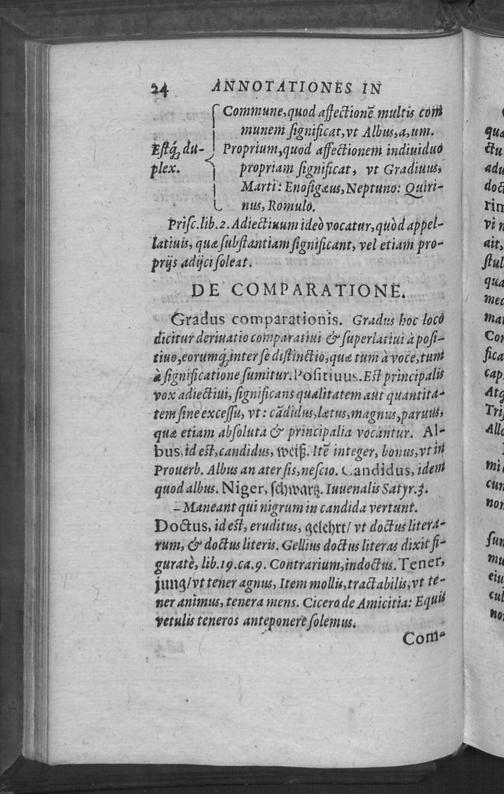 24 ANNOTATIONES IN
Commune, quod affectionē multis com
munem significat, vt Albus, a, um.
Estq́; du- Proprium, quod affectionem indiuiduo
plex. propriam significat, vt Gradiuus,
Marti: Enosigæus, Neptuno: Quiri-
nus, Romulo.
Prisc. lib. 2. Adiectiuum ideò vocatur, quòd appel-
latiuis, quæ substantiam significant, vel etiam pro-
prijs adijci soleat.
DE COMPARATIONE.
Gradus comparationis. Gradus hoc loco
dicitur deriuatio comparatiui & superlatiui à posi-
tiuo, eorumq́; inter se distinctio, quæ tum à voce, tum
à significatione sumitur. Positiuus. Est principalis
vox adiectiui, significans qualitatem aut quantita-
tem sine excessu, vt: cādidus, lætus, magnus, paruus,
quæ etiam absoluta & principalia vocantur. Al-
bus, id est, candidus, weiß. Itē integer, bonus, vt in
Prouerb. Albus an ater sis, nescio. Candidus, idem
quod albus. Niger, schwartz. Iuuenalis Satyr. 3.
– Maneant qui nigrum in candida vertunt.
Doctus, id est, eruditus, gelehrt/ vt doctus litera-
rum, & doctus literis. Gellius doctus literas dixit fi-
guratè, lib. 19. ca. 9. Contrarium, indoctus. Tener,
jung/ vt tener agnus, Item mollis, tractabilis, vt te-
ner animus, tenera mens. Cicero de Amicitia: Equis
vetulis teneros anteponere solemus.
Com-